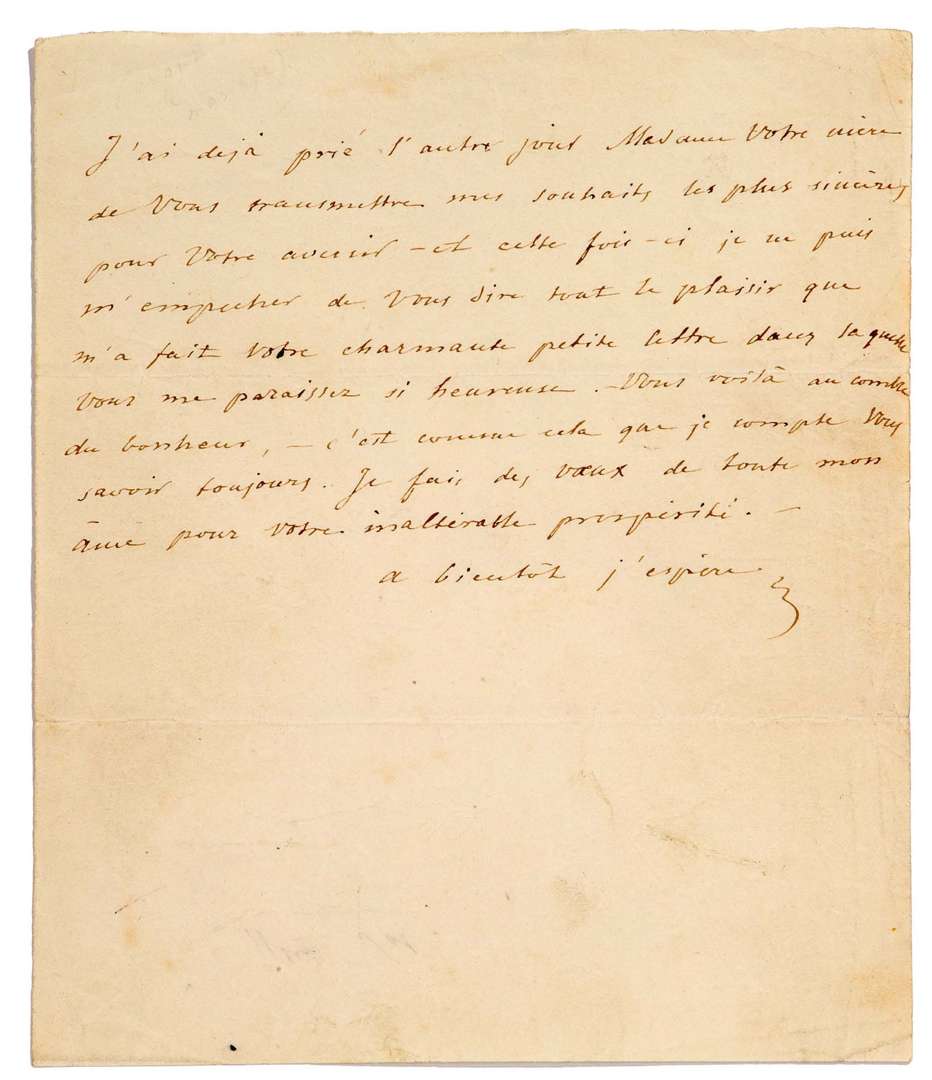 J'ai dejà prié l'autre jour Madame Votre mère
de Vous transmettre mes souhaits les plus sincères
pour Votre avenir – et cette fois-ci je ne puis
m'empecher de Vous dire tout le plaisir que
m'a fait Votre charmante petite lettre dans laquelle
Vous me paraissez si heureuse. – Vous voilà au comble
du bonheur, – c'est comme cela que je compte Vous
savoir toujours. Je fais des vœux de toute mon
âme pour Votre inaltérable prospérité. –
a bientôt j'espère